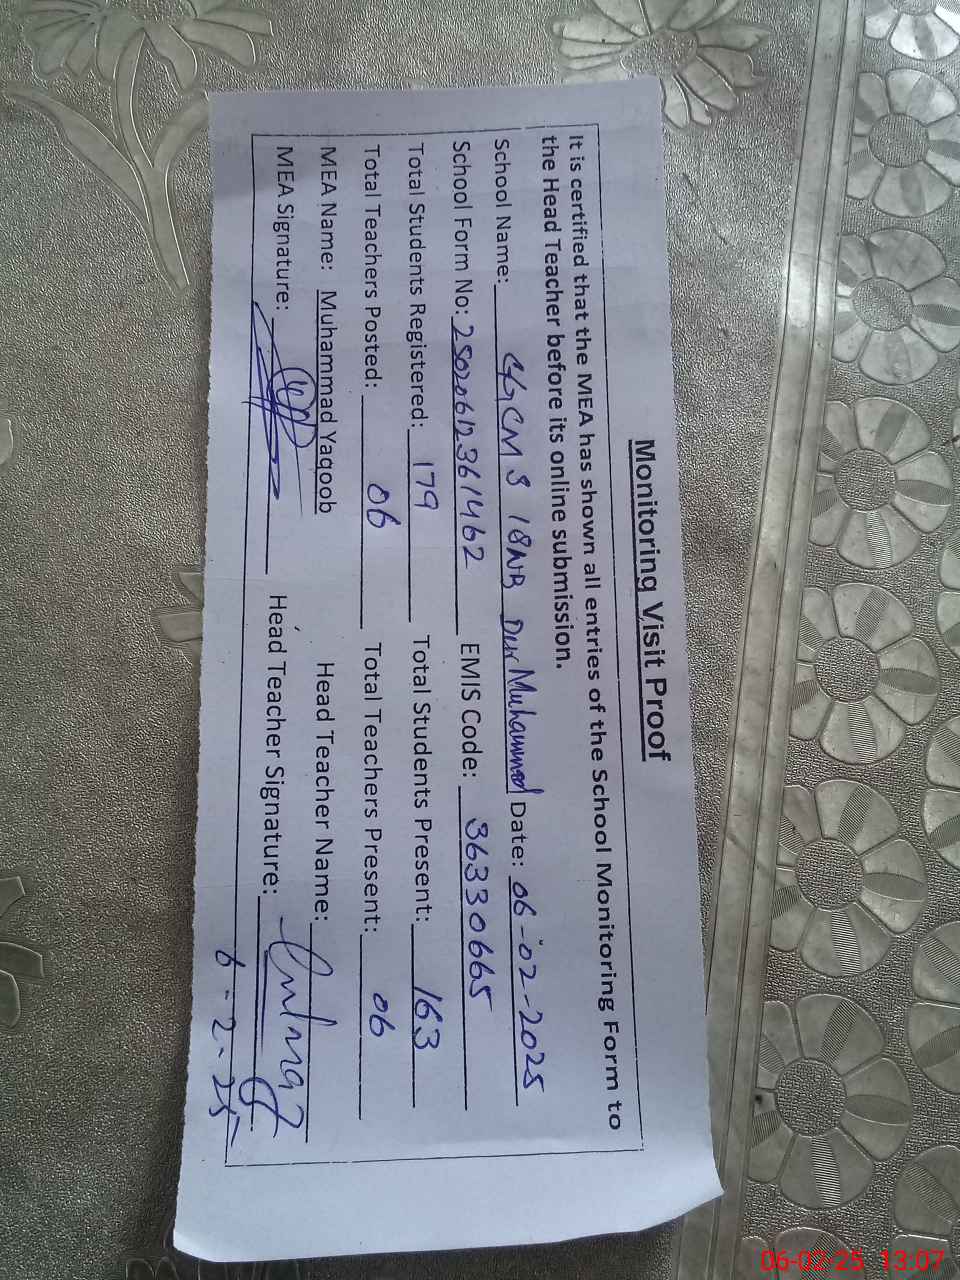 Monitoring Visit Proof
It is certified that the MEA has shown all entries of the School Monitoring Form to
the Head Teacher before its online submission.
School Name: GGCMS 18NB Dur Muhammad Date: 06-02-2025
School Form No: 25020612361462 EMIS Code: 36330665
Total Students Registered: 179 Total Students Present: 163
Total Teachers Posted: 06 Total Teachers Present: 06
MEA Name: Muhammad Yaqoob Head Teacher Name:
MEA Signature: Head Teacher Signature:
6-2-25
06-02-25 13:07